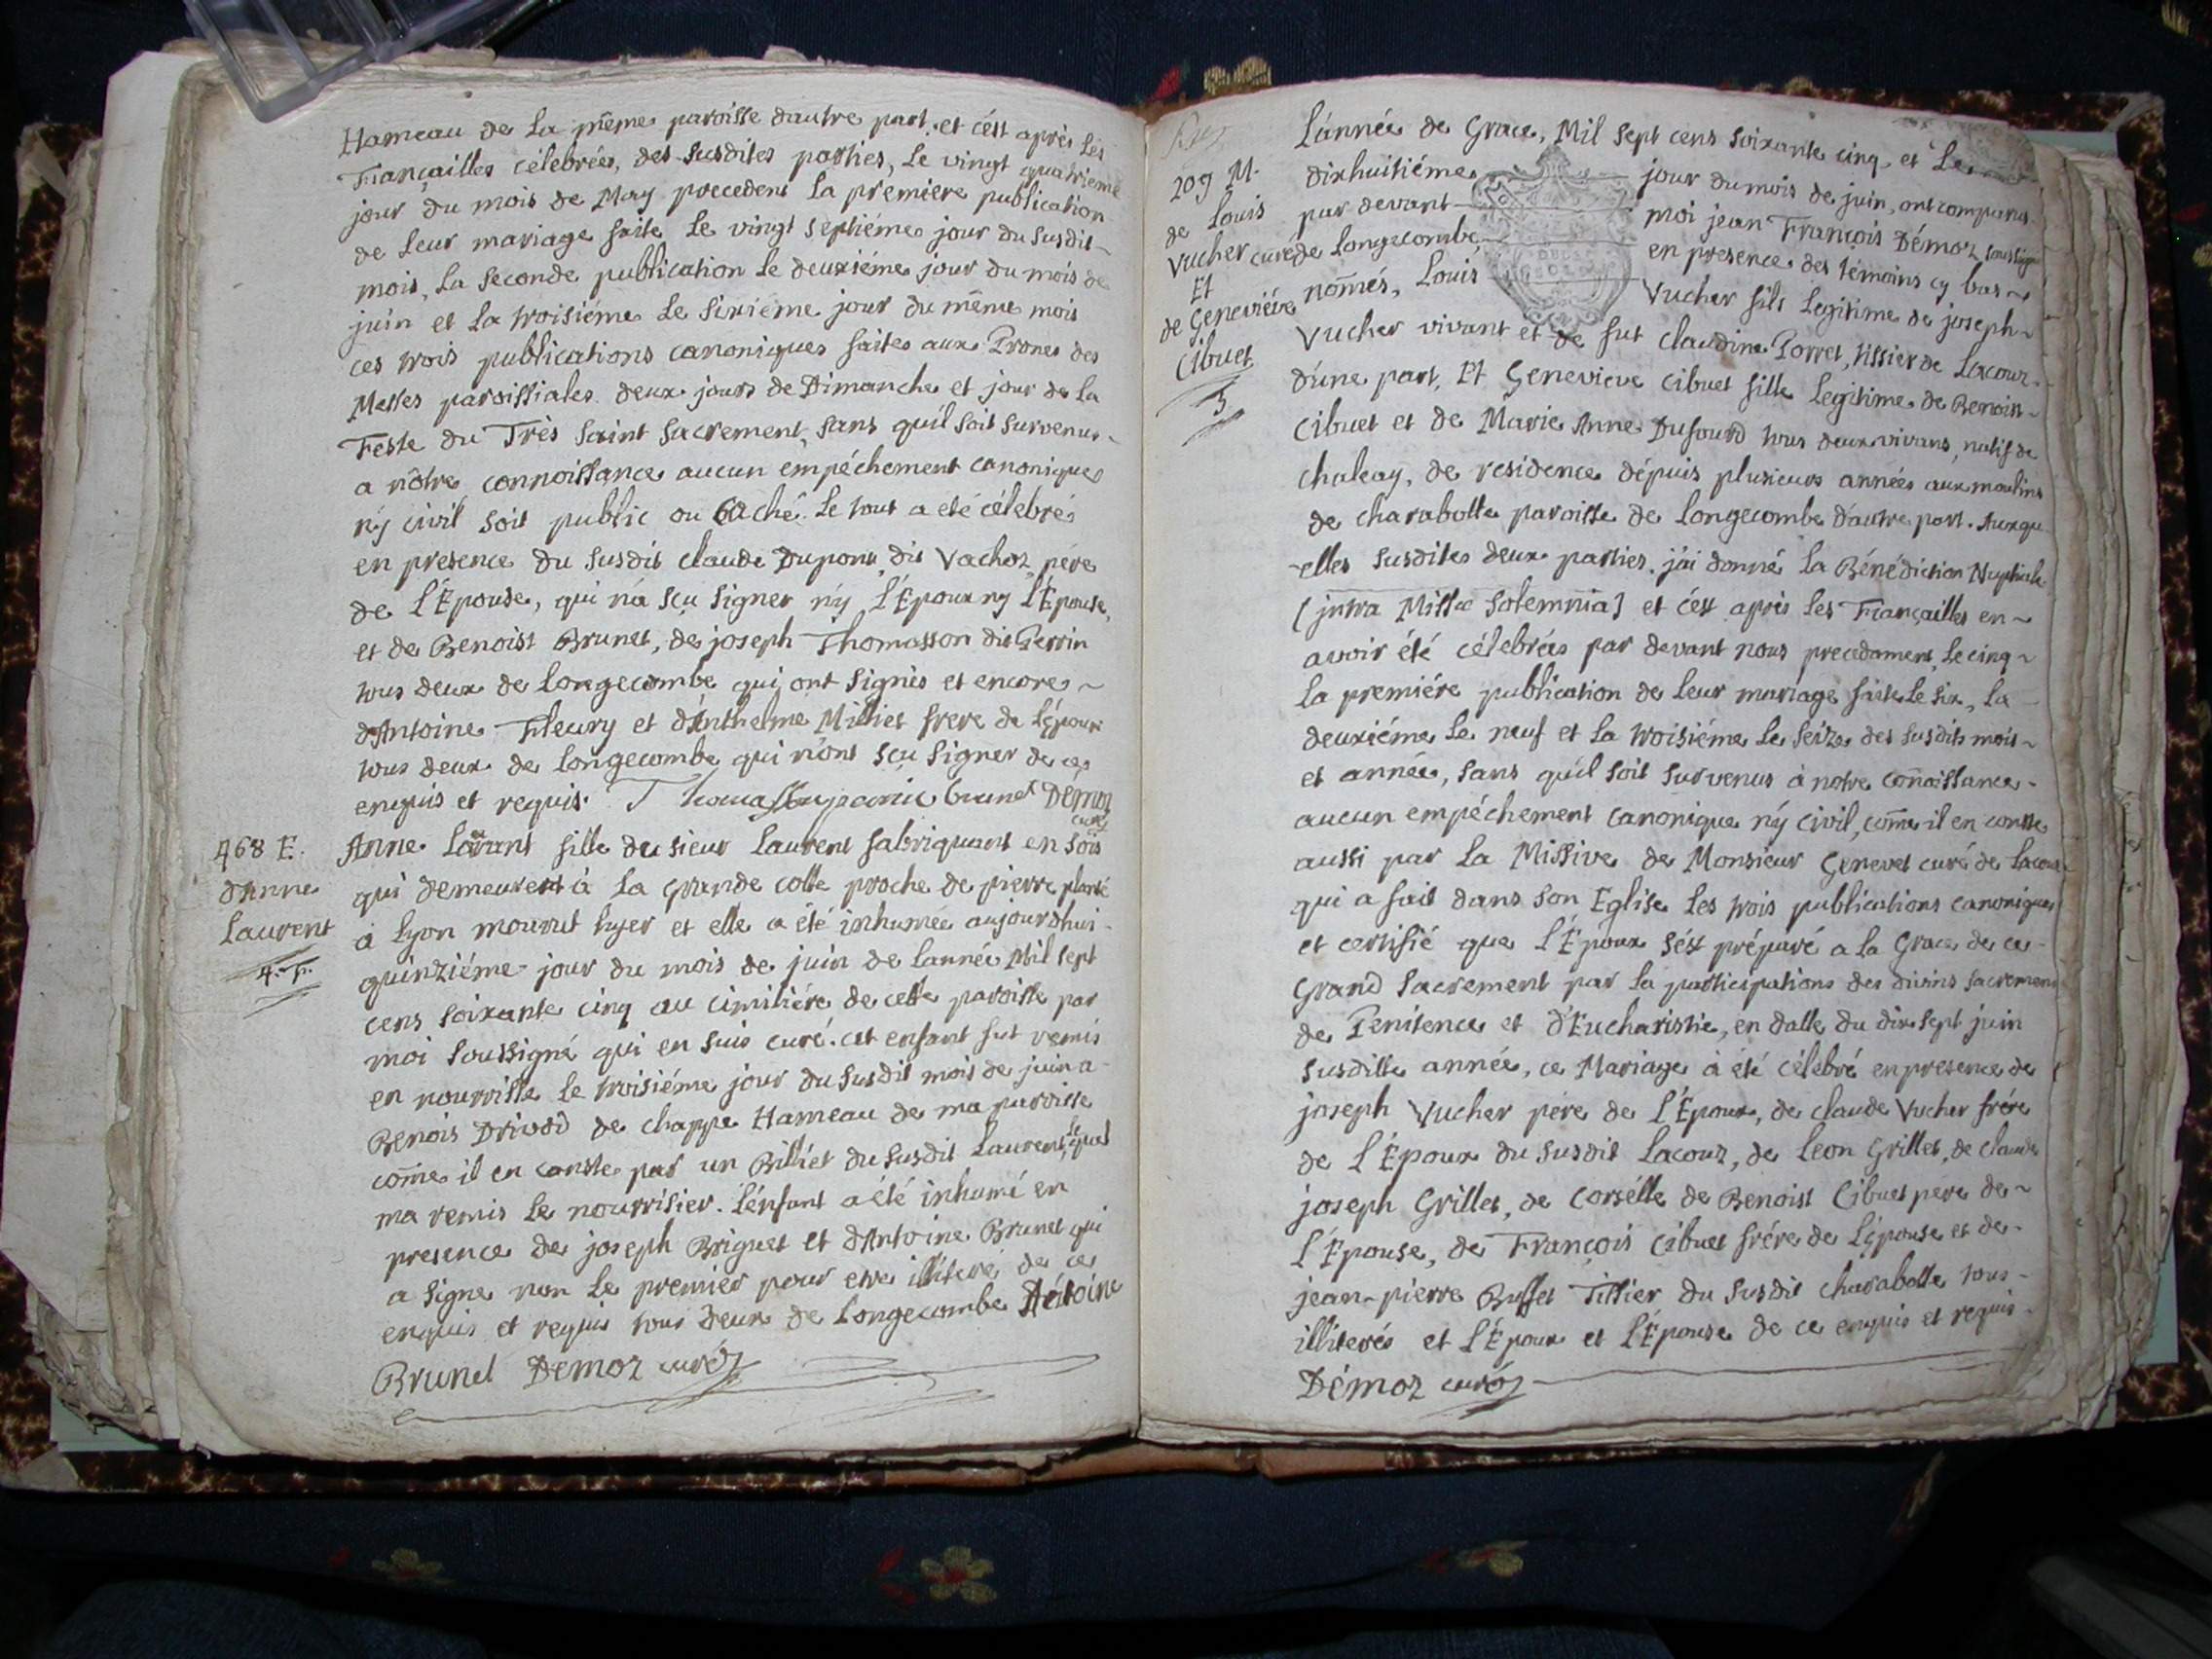 Hameau de La même paroisse dautre part. et c'ést après Les
Fiançailles célebrées, des susdites parties, Le vingt quatrieme
jour du mois de May precedent La premiere publication
de Leur mariage faite Le vingt septiéme jour du susdit
mois, La seconde publication Le deuxiéme jour du mois de
juin et La troisiéme Le sixiéme jour du même mois
ces trois publications canoniques faites aux Prones des
Messes paroissiales deux jours de Dimanche et jour de La
Feste du Très Saint Sacrement, sans quil soit survenus
a nôtre connoissance aucun empéchement canonique
n'y civil soit public ou Caché. Le tout a eté célebré
en presence du susdit claude Dupont dit Vachoz pére
de L'Épouse, qui n'a sçu signer n'y L'Époux ny L'Épouse,
et de Benoist Brunet, de joseph Thomasson dit Perrin
tous deux de Longecombe qui ont signés et encore
d'Antoine Fleury et d'Anthelme Milliet frere de L'époux
tous deux de Longecombe qui n'ont sçu signer de ce
enquis et requis. Thomasson brunet Démoz
curé
468 E.
d'Anne
Laurent
4. F.
Anne Laurant fille du sieur Laurent fabriquant en sois
qui demeurent à La grande cotte proche de pierre planté
à Lyon mourut hyer et elle a été inhumée aujourdhui
quinziéme jour du mois de juin de Lannée Mil sept
cens soixante cinq au cimitiére de cette paroisse par
moi soussigné qui en suis curé. cet enfant fut remis
en nourrisse Le troisiéme jour du susdit mois de juin a
Benois Drivod de chappe Hameau de ma paroisse
come il en conste par un Billiet du susdit Laurent, le quel
ma remis Le nourrisier. L'énfant a été inhumé en
presence de joseph Briguet et d'Antoine Brunet qui
a signe non Le premier pour etre illiteré de ce
enquis et requis tous deux de Longecombe Antoine
Brunet Démoz curé
209 M.
de Louis
Vucher
Et
de Geneviéve
Cibuet
5
L'année de Grace, Mil sept cens soixante cinq et Le
dixhuitiéme jour dumois de juin, ont comparus
par devant moi jean François Démoz soussigné
curé de Longecombe, en presence des témoins cy bas
només, Louis Vucher fils Legitime de joseph
Vucher vivant et de fut claudine Porret, tissier de Lacour
d'une part, Et Genevieve Cibuet fille Legitime de Benoist
Cibuet et de Marie Anne Dufourd tous deux vivans, natif de
chaleay, de residence dépuis plusieurs années aux moulins
de charabotte paroisse de Longecombe d'autre part. Auxqu
elles susdites deux parties j'ai donné La Bénédiction Nuptiale
(jntra Missæ Solemnia) et c'ést après Les Fiançailles en
avoir été célebrées par devant nous precedament, Le cinq
La premiére publication de Leur mariage faite Le six, La
deuxiéme Le neuf et La troisiéme Le seize des susdits mois
et année, sans qu'il soit survenus à notre conoissance
aucun empéchement canonique n'y civil, come il en conste
aussi par La Missive de Monsieur Genevet curé de Lacour
qui a fait dans son Eglise Les trois publications canoniques
et certifié que L'Époux s'ést préparé a La Grace de ce
Grand Sacrement par La participations des divins sacremens
de Penitence et d'Eucharistie, en datte du dix sept juin
susditte année, ce Mariage à été célébré en presence de
joseph Vucher pére de L'Époux, de claude Vucher frére
de L'Époux du susdit Lacour, de Leon Grillet, de claude
joseph Grillet, de Corsélle de Benoist Cibuet pere de
L'Épouse, de François Cibuet frére de L'épouse et de
jean-pierre Buffet Tissier du susdit charabotte tous
illiterés et L'Époux et L'Épouse de ce enquis et requis
Démoz curé